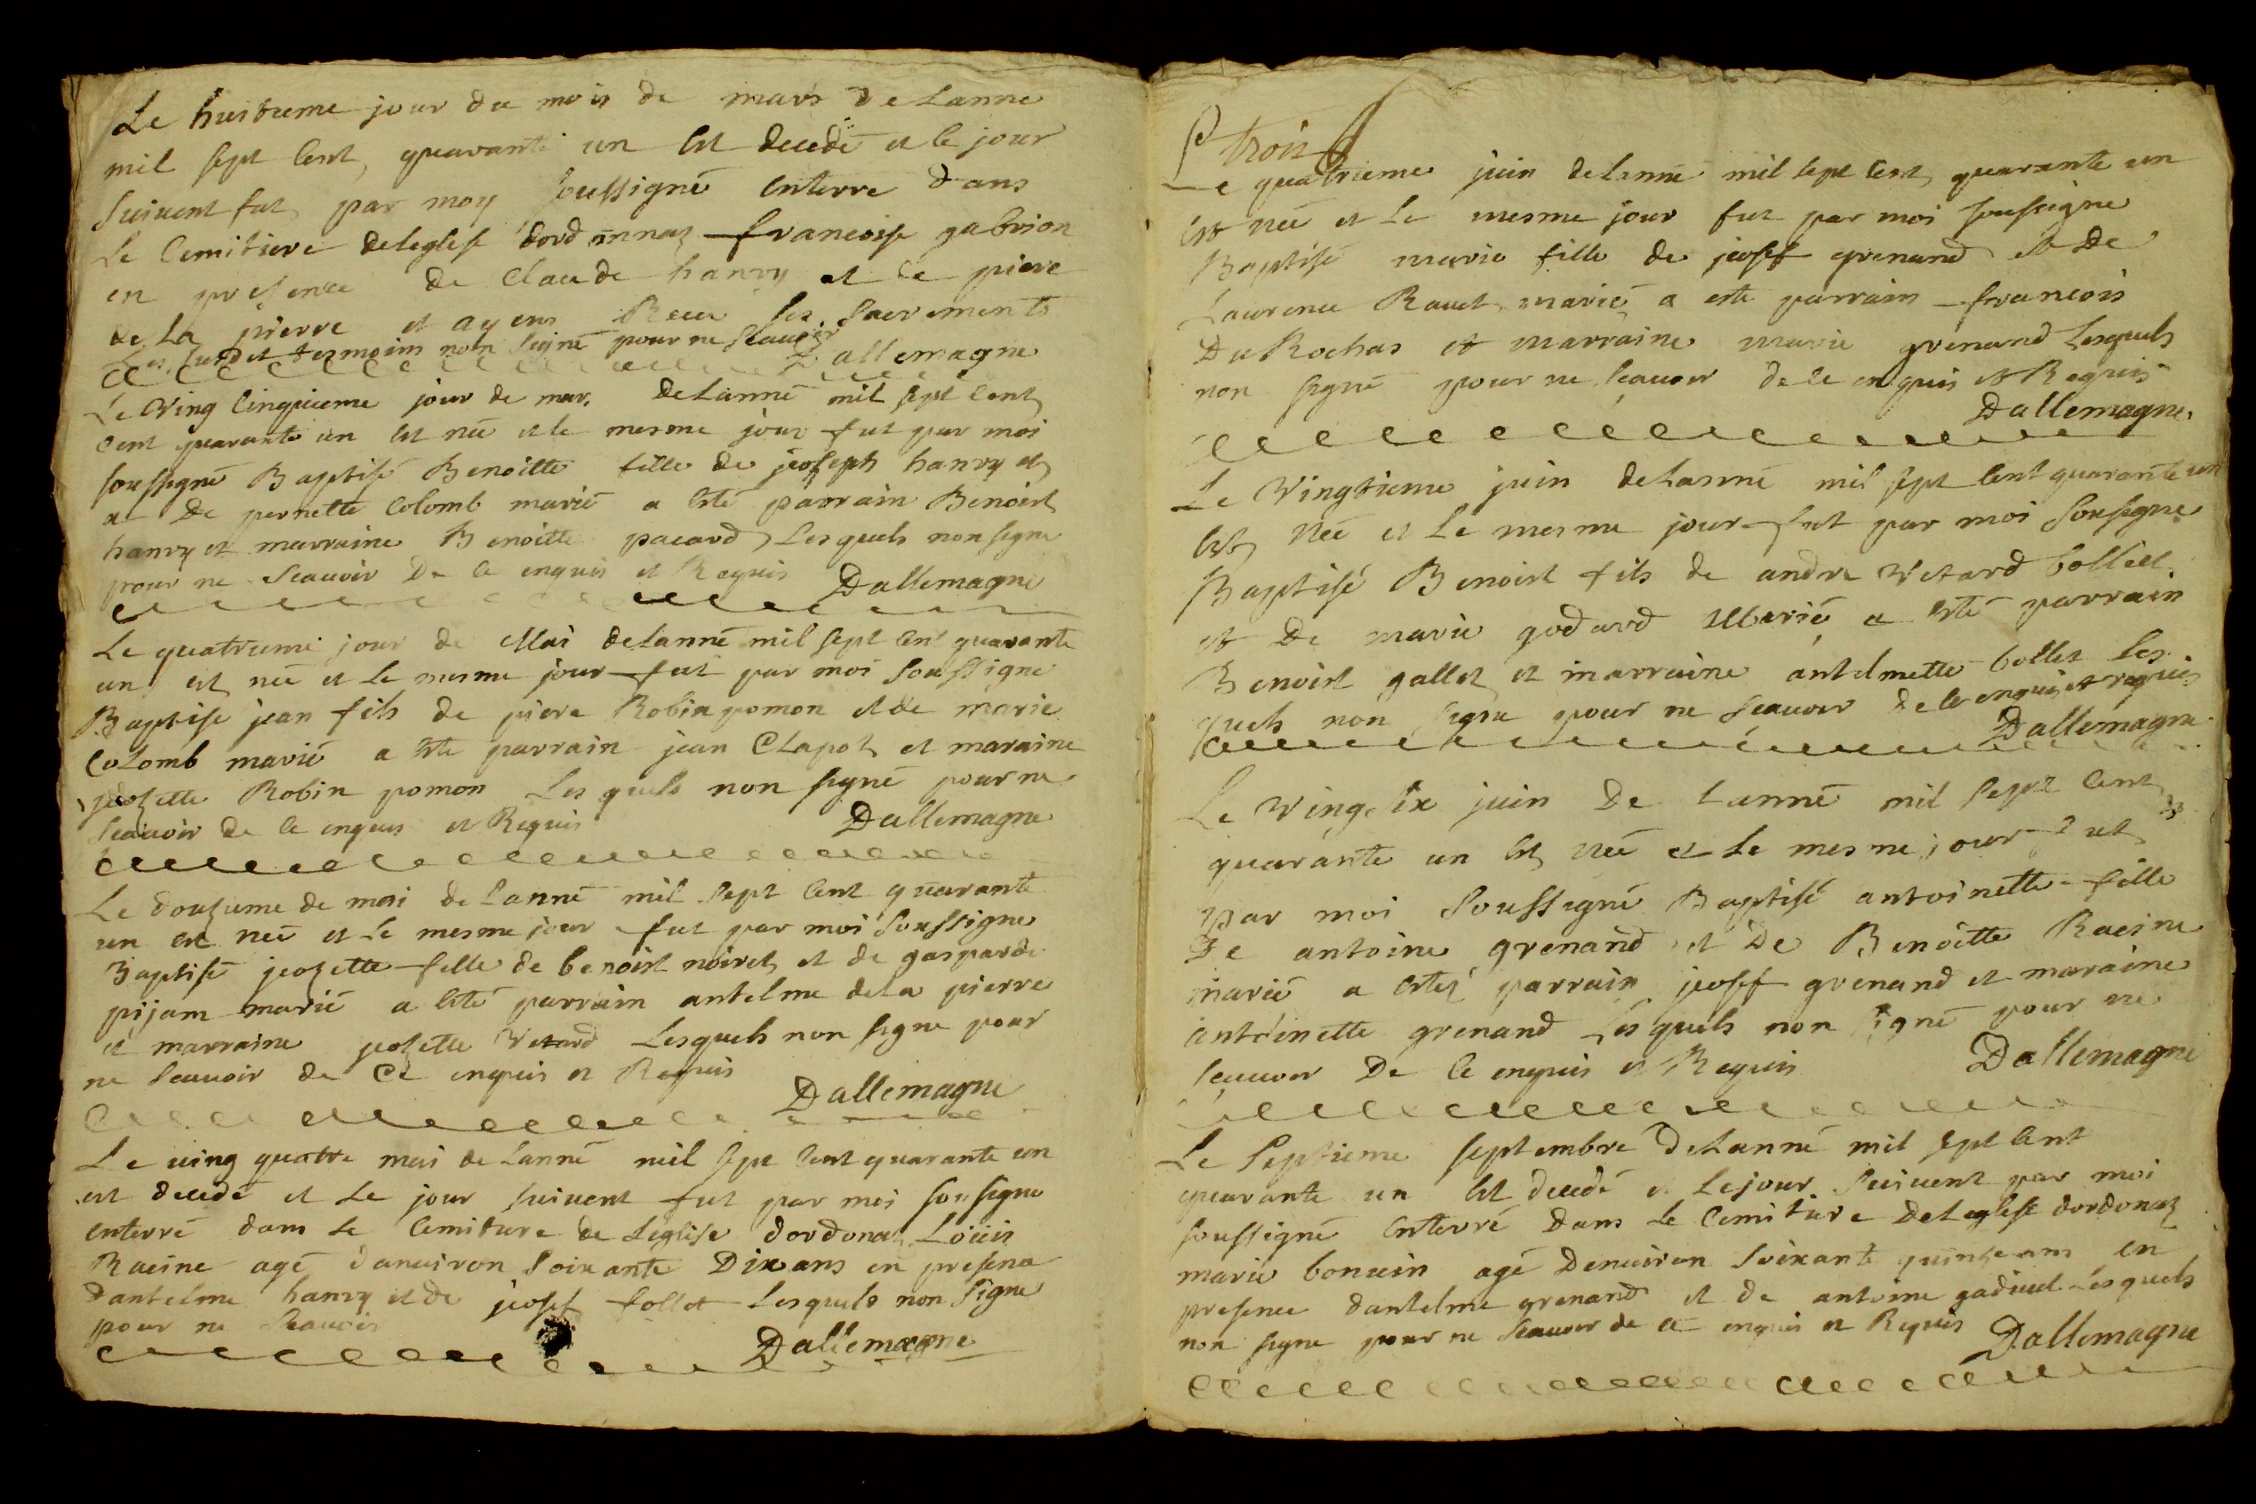 Le huitieme jour du mois de mars de Lanne
mil sept Cent, quarante un Est decedé et le jour
suivent fut par moy soussigné Enterre dans
Le Cemitiere deleglese dordonnaz francoise gabrion
en presence de Claude hanry et de piere
de La pierre et ayens Receu ses sacrements
Les susdit tesmoins non signé pour ne scauoir
Dallemagne
Le Ving Cinquieme jour de mar. deLanné mil sept Cent
Cent quarante un Est neé et le mesme jour fut par moi
soussigné Baptisé Benoitte fille de joseph hanry et
et De pernette Colomb marié a Esté parrain Benoist
hanry et marraine Benoitte pacard Lesquels non signe
pour ne Scauoir De Ce enquis et Requis Dallemagne
Le quatrieme jour de Mai deLanné mil sept Cent quarante
un est neé et Le mesme jour fut par moi Soussigne
Baptise jean fils de piere Robin pomon et de marie
Colomb marié a Este parrain jean Clapot et maraine
jeozette Robin pomon Les quels non signé pour ne
Scauoir de Ce enquis et Requis Dallemagne
Le douzieme de mai de Lanné mil Sept Cent quarante
un Est neé et Le mesme jour fut par moi Soussigne
Baptisé jeozette fille de benoist noiret et de gasparde
pijam marié a Esté parrain antelme deLa pierre
et marraine jeozette Vetard Lesquels non signe pour
ne Scauoir de Ce enquis et Requis
Dallemagne
Le uing quattre mai de Lanné mil sept Cent quarante un
est decedé et Le jour suiuent fut par moi sousigne
enterré dans Le Cemitiere de Leglise dordonaz Loüis
Racine agé danuiron Soixante Dix ans en presence
Dantelme hanry et de jeosef follet Lesquels non signe
pour ne Scauoir
Dallemagne
trois
Le quatrieme juin deLanné mil sept Cent, quarante un
Est neé et Le mesme jour fut par moi soussigne
Baptisé marie fille de jeosef grenand et De
Laurence Rauet marié a esté parrain francois
DuRochas et marraine marie grenand Lesquels
non signé pour ne scauoir de Ce enquis et Requis
Dallemagne
Le Vingtieme juin deLanné mil sept Cent quarante un
Est Neé et Le mesme jour fut par moi Sousigne
Baptisé Benoist fils de andre Vetard bolliet
et De marie godard Marié a Esté parrain
Benoist gallet et marraine antelmette bollet Les
quels non signe pour ne Scauoir de Ce enquis et requis
Dallemagne
Le Ving six juin De Lanné mil Sept Cent
quarante un Est Neé et Le mesme jour fut
par moi Soussigné Baptisé antoinette fille
De antoine grenand et De Benoitte Racine
marié a Estez parrain jeosef grenand et maraine
antoinette grenand Lesquels non signé pour ne
scauoir De Ce enquis et Requis
Dallemagne
Le Septieme septembre deLanné mil sept Cent
quarante un Est decedé et Le jour Suiuent par moi
soussigné Enterré Dans Le Cemitiere DeLeglese dordonaz
marie bonuin agé Denuiron Soixante quinze ans en
presence dantelme grenand et de antoine gadiuet Lesquels
non signe pour ne Scauoir de Ce enquis et Requis Dallemagne